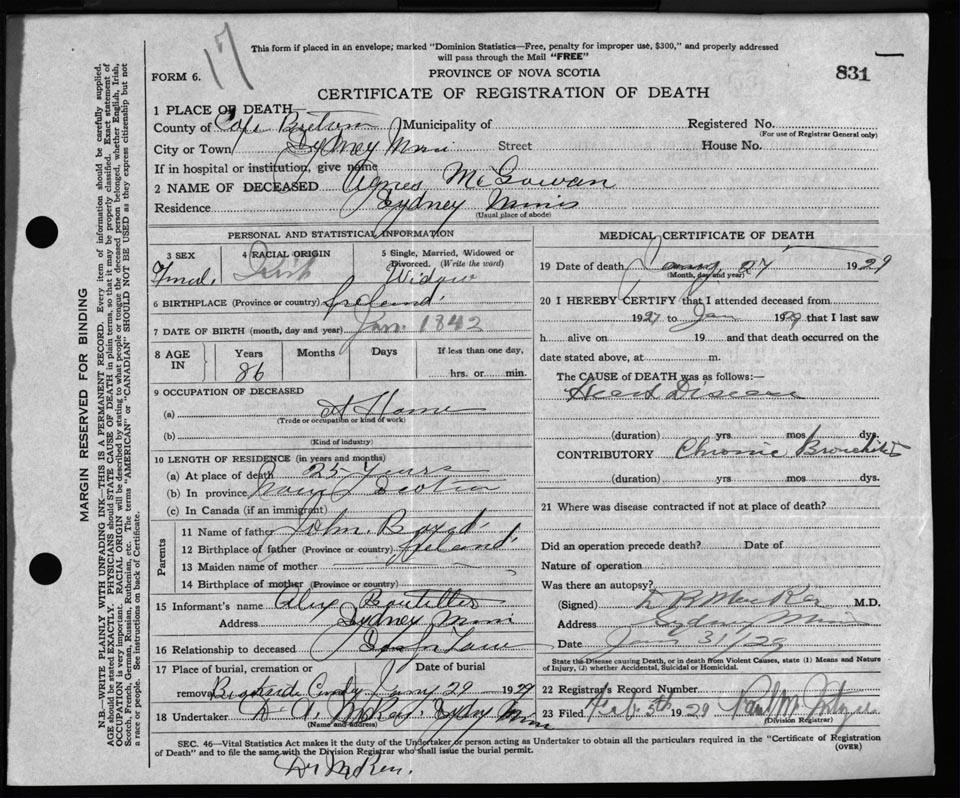 17
This form if placed in an envelope, marked "Dominion Statistics—Free, penalty for improper use, $300," and properly addressed
will pass through the Mail "FREE"
FORM 6.
PROVINCE OF NOVA SCOTIA
831
CERTIFICATE OF REGISTRATION OF DEATH
1 PLACE OF DEATH
County of Cape Breton Municipality of Registered No.
(For use of Registrar General only)
City or Town Sydney Mines Street House No.
If in hospital or institution, give name
2 NAME OF DECEASED Agnes McGowan
Residence Sydney Mines
(Usual place of abode)
PERSONAL AND STATISTICAL INFORMATION
3 SEX 4 RACIAL ORIGIN 5 Single, Married, Widowed or
Divorced. (Write the word)
Irish Widow
6 BIRTHPLACE (Province or country) Ireland
7 DATE OF BIRTH (month, day and year) Jan. 1842
8 AGE IN Years Months Days If less than one day,
86 hrs. or min.
9 OCCUPATION OF DECEASED
(a) At Home
(Trade or occupation or kind of work)
(b)
(Kind of industry)
10 LENGTH OF RESIDENCE (in years and months)
(a) At place of death 25 Years
(b) In province Nova Scotia
(c) In Canada (if an immigrant)
Parents
11 Name of father John Boyd
12 Birthplace of father (Province or country) Ireland
13 Maiden name of mother
14 Birthplace of mother (Province or country)
15 Informant's name Alex
Address Sydney Mines
16 Relationship to deceased Law
17 Place of burial, cremation or Date of burial
removal 29 1929
18 Undertaker Sydney Mines
(Name and address)
MEDICAL CERTIFICATE OF DEATH
19 Date of death 27 1929
(Month, day and year)
20 I HEREBY CERTIFY that I attended deceased from
1927 to Jan 1929 that I last saw
h alive on 19 and that death occurred on the
date stated above, at m.
The CAUSE of DEATH was as follows:—
Heart Disease
(duration) yrs mos dys.
CONTRIBUTORY Chronic Bronchitis
(duration) yrs. mos. dys.
21 Where was disease contracted if not at place of death?
Did an operation precede death? Date of
Nature of operation
Was there an autopsy?
(Signed) M.D.
Address Sydney Mines
Date Jan 31/29
State the Disease causing Death, or in death from Violent Causes, state (1) Means and Nature
of Injury, (2) whether Accidental, Suicidal or Homicidal.
22 Registrar's Record Number
23 Filed Feb. 5th 1929
(Division Registrar)
SEC. 46—Vital Statistics Act makes it the duty of the Undertaker or person acting as Undertaker to obtain all the particulars required in the "Certificate of Registration
of Death" and to file the same with the Division Registrar who shall issue the burial permit.
(OVER)
MARGIN RESERVED FOR BINDING
N.B.—WRITE PLAINLY WITH UNFADING INK—THIS IS A PERMANENT RECORD. Every item of information should be carefully supplied.
AGE should be stated EXACTLY. PHYSICIANS should STATE CAUSE OF DEATH in plain terms, so that it may be properly classified. Exact statement of
OCCUPATION is very important. RACIAL ORIGIN will be described by stating to what people or tongue the deceased person belonged, whether English, Irish,
Scotch, French, German, Russian, Ruthenian, etc. The terms "AMERICAN" or "CANADIAN" SHOULD NOT BE USED as they express citizenship but not
a race or people. See instructions on back of Certificate.